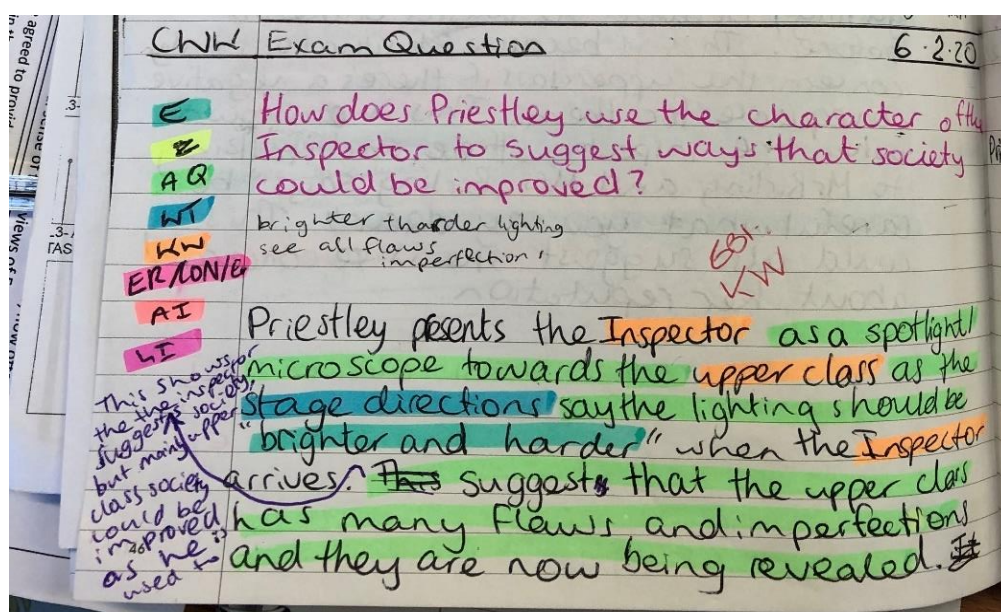 CWW Exam Question 6.2.20
E How does Priestley use the character of the
Z Inspector to suggest ways that society
AQ could be improved?
WT brighter tharder lighting
KW see all flaws
imperfection
ER/CON/G
AI
LI
KW
Priestley presents the Inspector as a spotlight/
microscope towards the upper class as the
stage directions say the lighting should be
"brighter and harder" when the Inspector
arrives. This suggests that the upper class
has many flaws and imperfections
and they are now being revealed. It
This shows
the inspector
suggests society,
but mainly upper
class society
could be
improved
as he is
used to
agreed to provid
views of
-3-
TAS